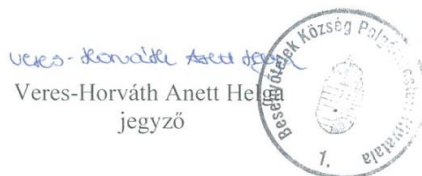 Veres-Horváth Anett Helga
Veres-Horváth Anett Helga
jegyző
Besenyőtelek Község Polgármesteri Hivatala
1.